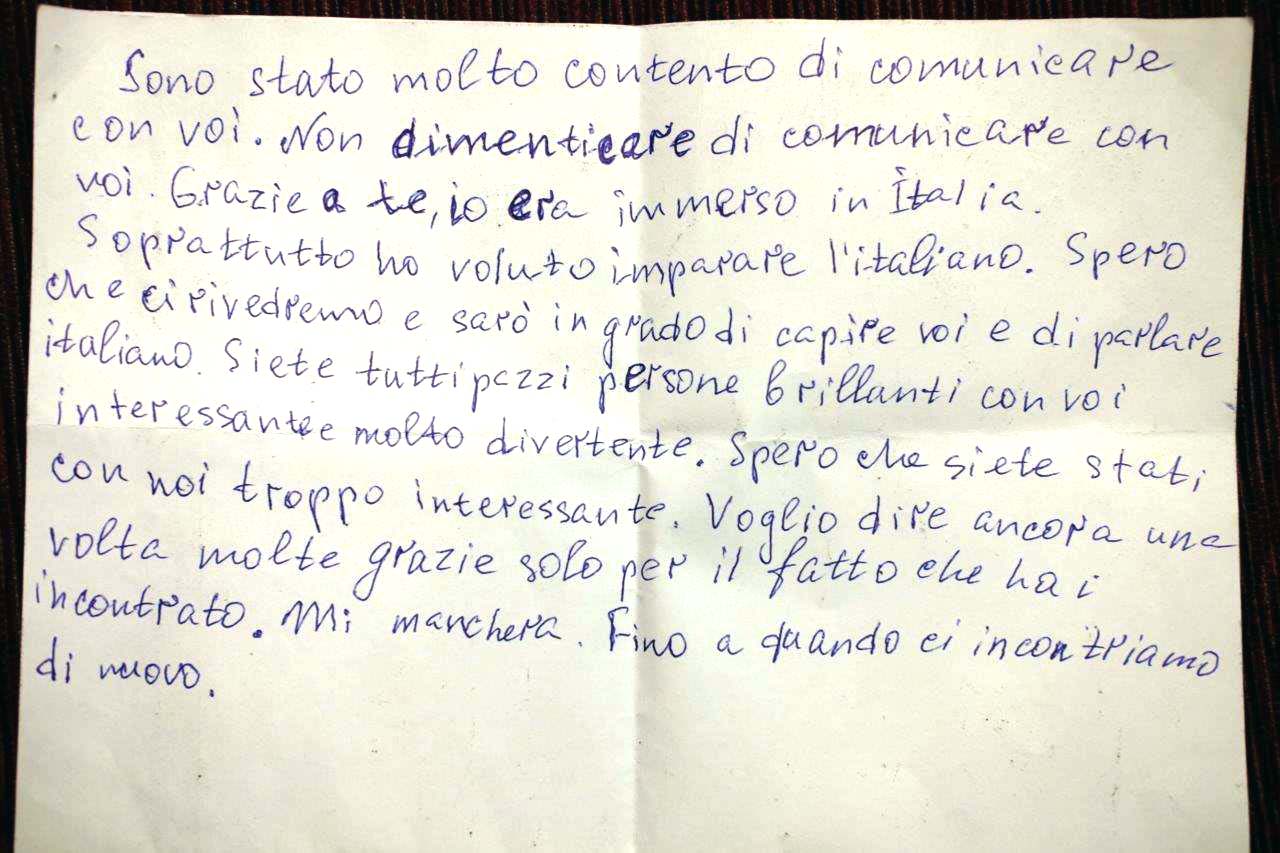 Sono stato molto contento di comunicare
con voi. Non dimenticare di comunicare con
voi. Grazie a te, io era immerso in Italia.
Soprattutto ho voluto imparare l'italiano. Spero
che ci rivedremo e sarò in grado di capire voi e di parlare
italiano. Siete tutti pezzi persone brillanti con voi
interessante e molto divertente. Spero che siete stati
con noi troppo interessante. Voglio dire ancora una
volta molte grazie solo per il fatto che hai
incontrato. Mi manchera. Fino a quando ci incontriamo
di nuovo.